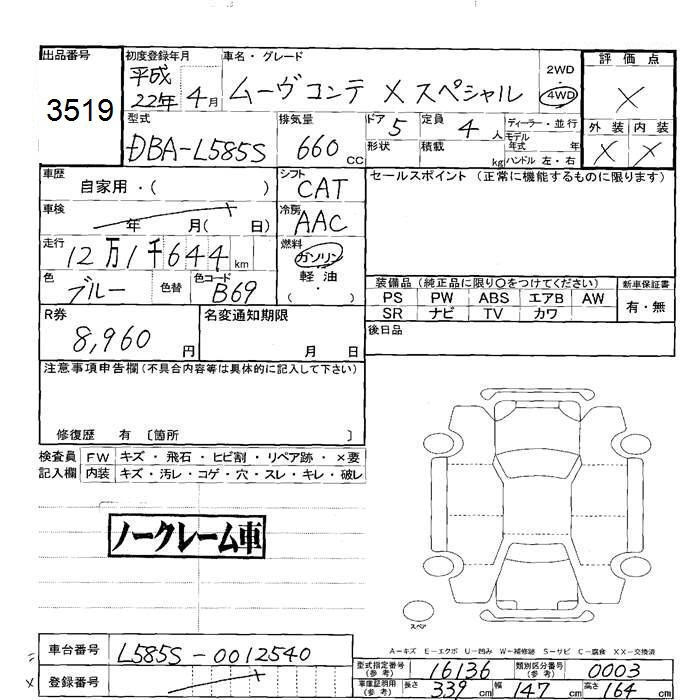 出品番号
3519
初度登録年月
平成
22年 4月
車名・グレード
ムーヴコンテ X スペシャル
2WD
・
4WD
評価点
X
外装 内装
X X
型式
DBA-L585S
排気量
660 CC
ドア 5
形状
定員 4 人
積載 kg
ディーラー・並行
モデル
年式 年
ハンドル 左・右
車歴
自家用・( )
シフト
CAT
セールスポイント (正常に機能するものに限ります)
車検
年 月( 日)
冷房
AAC
走行
12万1千644 km
燃料
ガソリン
軽油
( ・ )
色
ブルー
色替
色コード
B69
装備品(純正品に限り○をつけてください)
PS PW ABS エアB AW
SR ナビ TV カワ
新車保証書
有・無
R券
8,960 円
名変通知期限
月 日
後日品
注意事項申告欄(不具合内容等は具体的に記入して下さい)
修復歴 有 〔箇所 〕
検査員 FW キズ・飛石・ヒビ割・リペア跡・×要
記入欄 内装 キズ・汚レ・コゲ・穴・スレ・キレ・破レ
ノークレーム車
スペア
A-キズ E-エクボ U-凹み W-補修跡 S-サビ C-腐食 XX-交換済
車台番号 L585S-0012540
登録番号
型式指定番号
(参考)
16136
類別区分番号
(参考)
0003
車庫証明用
(参考)
長さ 339 cm 幅 147 cm 高さ 164 cm